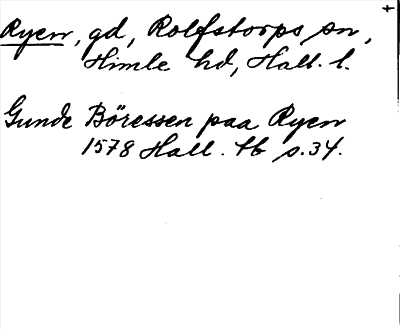 Ryen, gd, Rolfstorps sn,
Himle hd, Hall. l.
Gunde Böressen paa Ryen
1578 Hall. tb s.34.